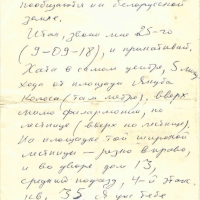 пообщаться на белорусской
земле.
Итак, звони мне 25-го
(9-09-18), и приезжай.
Хата в самом центре, 5 мин
хода от площади Якуба
Коласа (там метро), вверх
мимо филармонии, по
лестнице (вверх по лестнице).
На площадке той широкой
лестницы — резко вправо,
и во дворе дом 13,
средний подъезд, 4-й этаж
кв. 35. Я уж тебе